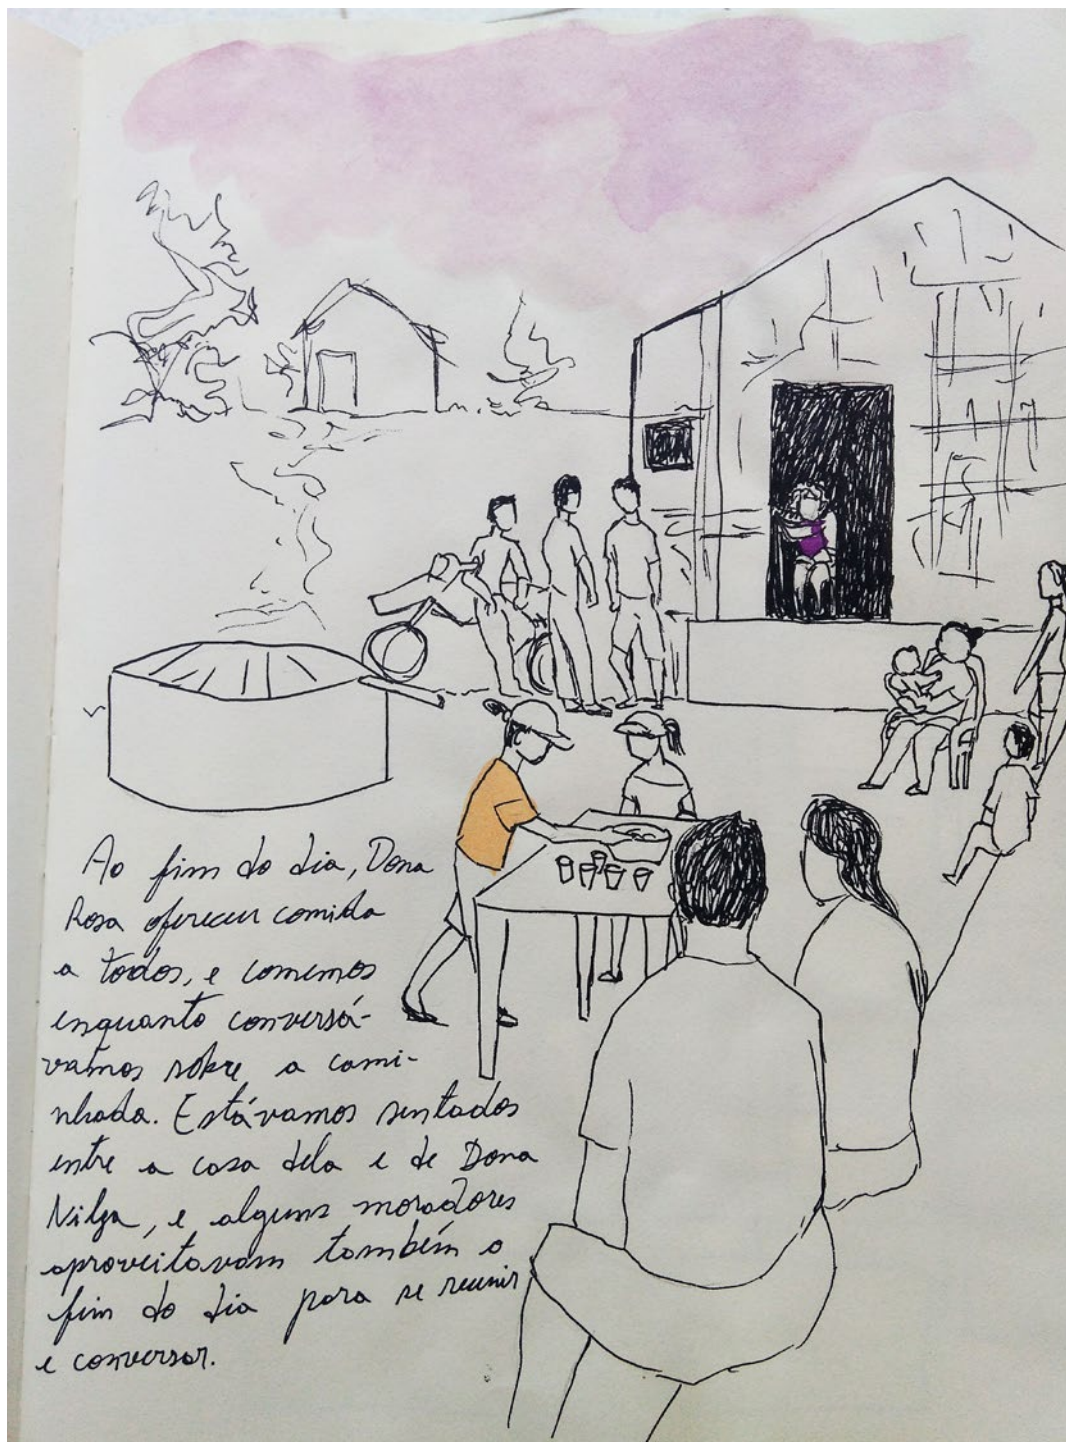 Ao fim do dia, Dona
Rosa ofereceu comida
a todos, e comemos
enquanto conversá-
vamos sobre a cami-
nhada. Estávamos sentados
entre a casa dela e de Dona
Nilza, e alguns moradores
aproveitavam também o
fim do dia para se reunir
e conversar.